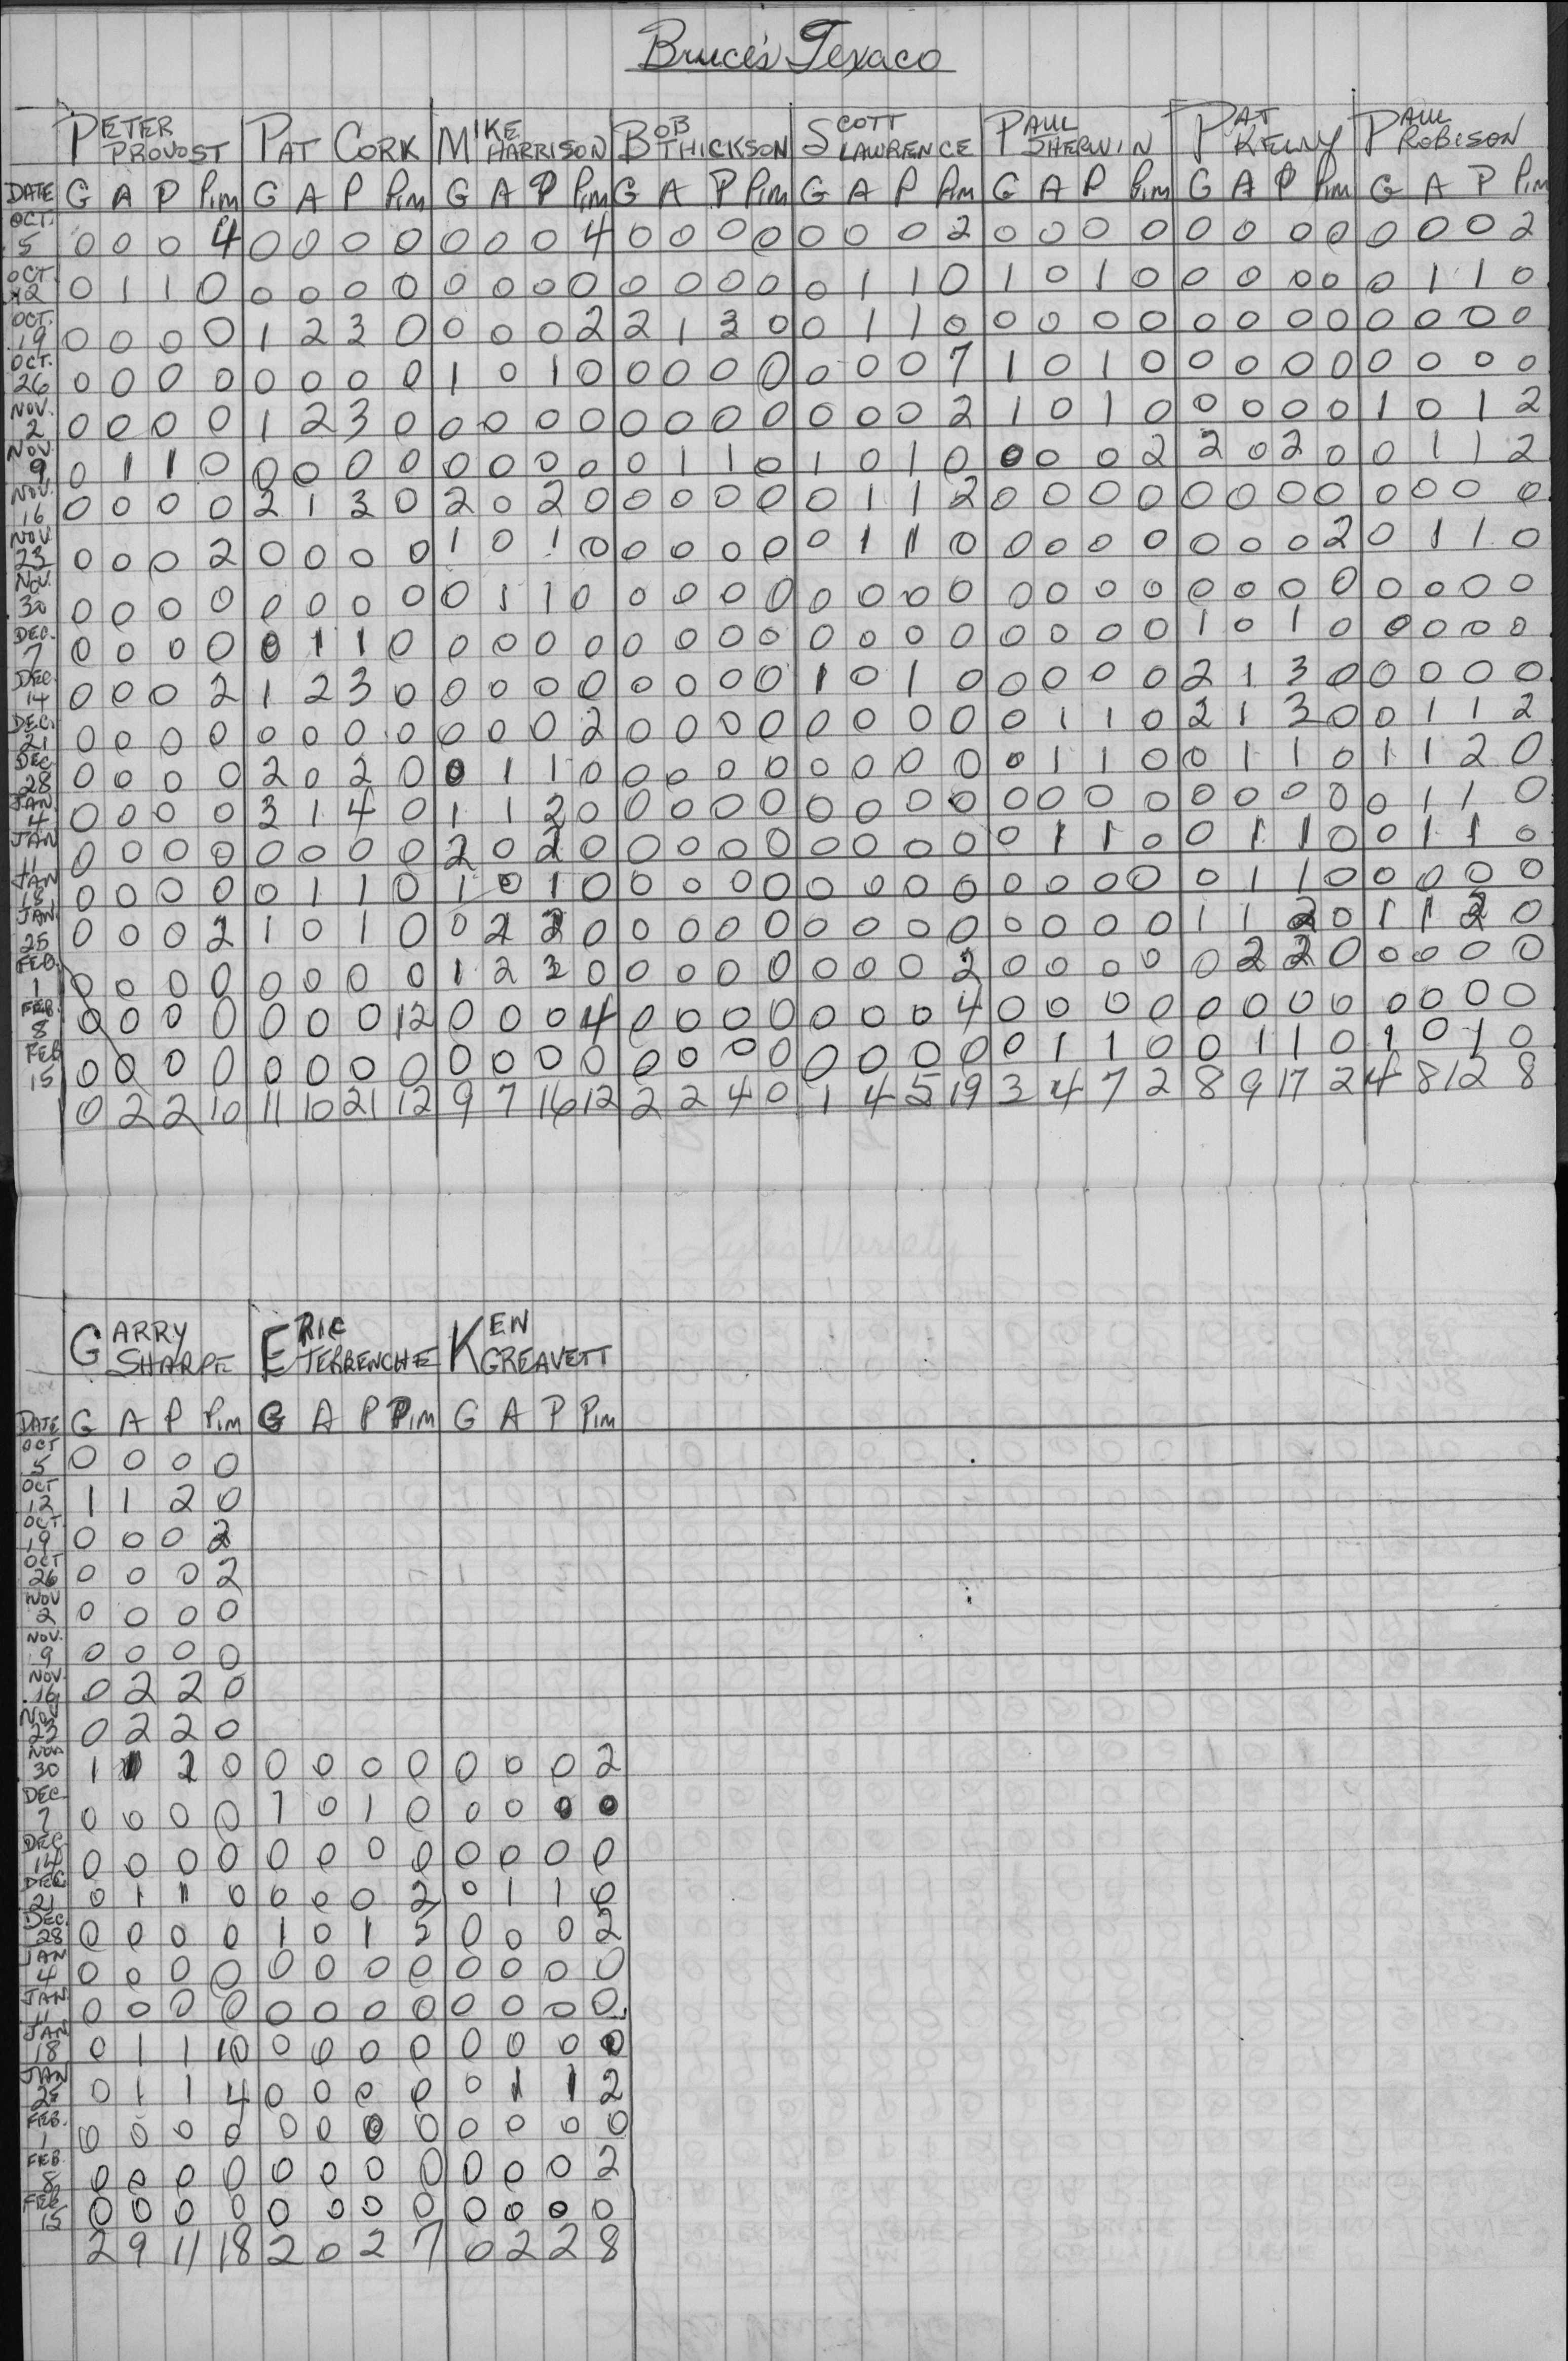 Bruce's Texaco
PETER PROVOST PAT CORK MIKE HARRISON BOB THICKSON SCOTT LAWRENCE PAUL SHERWIN PAT KELLY PAUL ROBISON
DATE G A P Pim G A P Pim G A P Pim G A P Pim G A P Pim G A P Pim G A P Pim G A P Pim
OCT. 5 0 0 0 4 0 0 0 0 0 0 0 4 0 0 0 0 0 0 0 2 0 0 0 0 0 0 0 0 0 0 0 2
OCT. 12 0 1 1 0 0 0 0 0 0 0 0 0 0 0 0 0 0 1 1 0 1 0 1 0 0 0 0 0 0 1 1 0
OCT. 19 0 0 0 0 1 2 3 0 0 0 0 2 2 1 3 0 0 1 1 0 0 0 0 0 0 0 0 0 0 0 0 0
OCT. 26 0 0 0 0 0 0 0 0 1 0 1 0 0 0 0 0 0 0 0 7 1 0 1 0 0 0 0 0 0 0 0 0
NOV. 2 0 0 0 0 1 2 3 0 0 0 0 0 0 0 0 0 0 0 0 2 1 0 1 0 0 0 0 0 1 0 1 2
NOV. 9 0 1 1 0 0 0 0 0 0 0 0 0 0 1 1 0 1 0 1 0 0 0 0 2 2 0 2 0 0 1 1 2
NOV. 16 0 0 0 0 2 1 3 0 2 0 2 0 0 0 0 0 0 1 1 2 0 0 0 0 0 0 0 0 0 0 0 0
NOV. 23 0 0 0 2 0 0 0 0 1 0 1 0 0 0 0 0 0 1 1 0 0 0 0 0 0 0 0 2 0 1 1 0
NOV. 30 0 0 0 0 0 0 0 0 0 1 1 0 0 0 0 0 0 0 0 0 0 0 0 0 0 0 0 0 0 0 0 0
DEC. 7 0 0 0 0 0 1 1 0 0 0 0 0 0 0 0 0 0 0 0 0 0 0 0 0 1 0 1 0 0 0 0 0
DEC. 14 0 0 0 2 1 2 3 0 0 0 0 0 0 0 0 0 1 0 1 0 0 0 0 0 2 1 3 0 0 0 0 0
DEC. 21 0 0 0 0 0 0 0 0 0 0 0 2 0 0 0 0 0 0 0 0 0 1 1 0 2 1 3 0 0 1 1 2
DEC 28 0 0 0 0 2 0 2 0 0 1 1 0 0 0 0 0 0 0 0 0 0 1 1 0 0 1 1 0 1 1 2 0
JAN. 4 0 0 0 0 3 1 4 0 1 1 2 0 0 0 0 0 0 0 0 0 0 0 0 0 0 0 0 0 0 1 1 0
JAN 11 0 0 0 0 0 0 0 0 2 0 2 0 0 0 0 0 0 0 0 0 0 1 1 0 0 1 1 0 0 1 1 0
JAN 18 0 0 0 0 0 1 1 0 1 0 1 0 0 0 0 0 0 0 0 0 0 0 0 0 0 1 1 0 0 0 0 0
JAN. 25 0 0 0 2 1 0 1 0 0 2 2 0 0 0 0 0 0 0 0 0 0 0 0 0 1 1 2 0 1 1 2 0
FEB. 1 0 0 0 0 0 0 0 0 1 2 3 0 0 0 0 0 0 0 0 2 0 0 0 0 0 2 2 0 0 0 0 0
FEB. 8 0 0 0 0 0 0 0 12 0 0 0 4 0 0 0 0 0 0 0 4 0 0 0 0 0 0 0 0 0 0 0 0
FEB 15 0 0 0 0 0 0 0 0 0 0 0 0 0 0 0 0 0 0 0 0 0 1 1 0 0 1 1 0 1 0 1 0
0 2 2 10 11 10 21 12 9 7 16 12 2 2 4 0 1 4 5 19 3 4 7 2 8 9 17 2 4 8 12 8
GARRY SHARPE ERIC TERRENCHE KEN GREAVETT
DATE G A P Pim G A P Pim G A P Pim
OCT 5 0 0 0 0
OCT 12 1 1 2 0
OCT. 19 0 0 0 2
OCT 26 0 0 0 2
NOV 2 0 0 0 0
NOV. 9 0 0 0 0
NOV. 16 0 2 2 0
NOV 23 0 2 2 0
NOV 30 1 1 2 0 0 0 0 0 0 0 0 2
DEC. 7 0 0 0 0 1 0 1 0 0 0 0 0
DEC. 14 0 0 0 0 0 0 0 0 0 0 0 0
DEC 21 0 1 1 0 0 0 0 2 0 1 1 0
DEC. 28 0 0 0 0 1 0 1 5 0 0 0 2
JAN 4 0 0 0 0 0 0 0 0 0 0 0 0
JAN. 11 0 0 0 0 0 0 0 0 0 0 0 0
JAN 18 0 1 1 10 0 0 0 0 0 0 0 0
JAN 25 0 1 1 4 0 0 0 0 0 1 1 2
FEB. 1 0 0 0 0 0 0 0 0 0 0 0 0
FEB. 8 0 0 0 0 0 0 0 0 0 0 0 2
FEB. 15 0 0 0 0 0 0 0 0 0 0 0 0
2 9 11 18 2 0 2 7 0 2 2 8